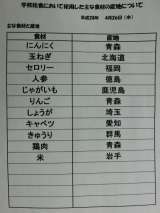 学校給食において使用した主な食材の産地について
平成28年 4月26日（水）
主な食材と産地
食材 産地
にんにく 青森
玉ねぎ 北海道
セロリー 福岡
人参 徳島
じゃがいも 鹿児島
りんご 青森
しょうが 埼玉
キャベツ 愛知
きゅうり 群馬
鶏肉 青森
米 岩手